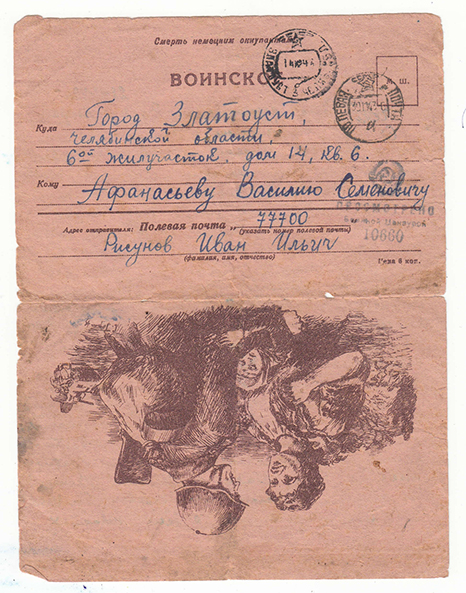 Смерть немецким оккупантам
ВОИНСКО
Куда Город Златоуст,
Челябинской области,
6ой жилучасток, дом 14, кв. 6.
Кому Афанасьеву Василию Семеновичу
Адрес отправителя: Полевая почта 77700
(указать номер полевой почты)
Рисунов Иван Ильич
(фамилия, имя, отчество)
Цена 6 коп.
Просмотрено
Военной Цензурой
10660